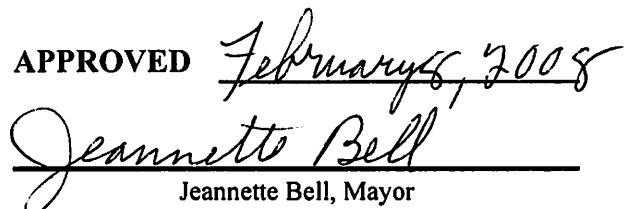 APPROVED February 8, 2008
Jeannette Bell
Jeannette Bell, Mayor